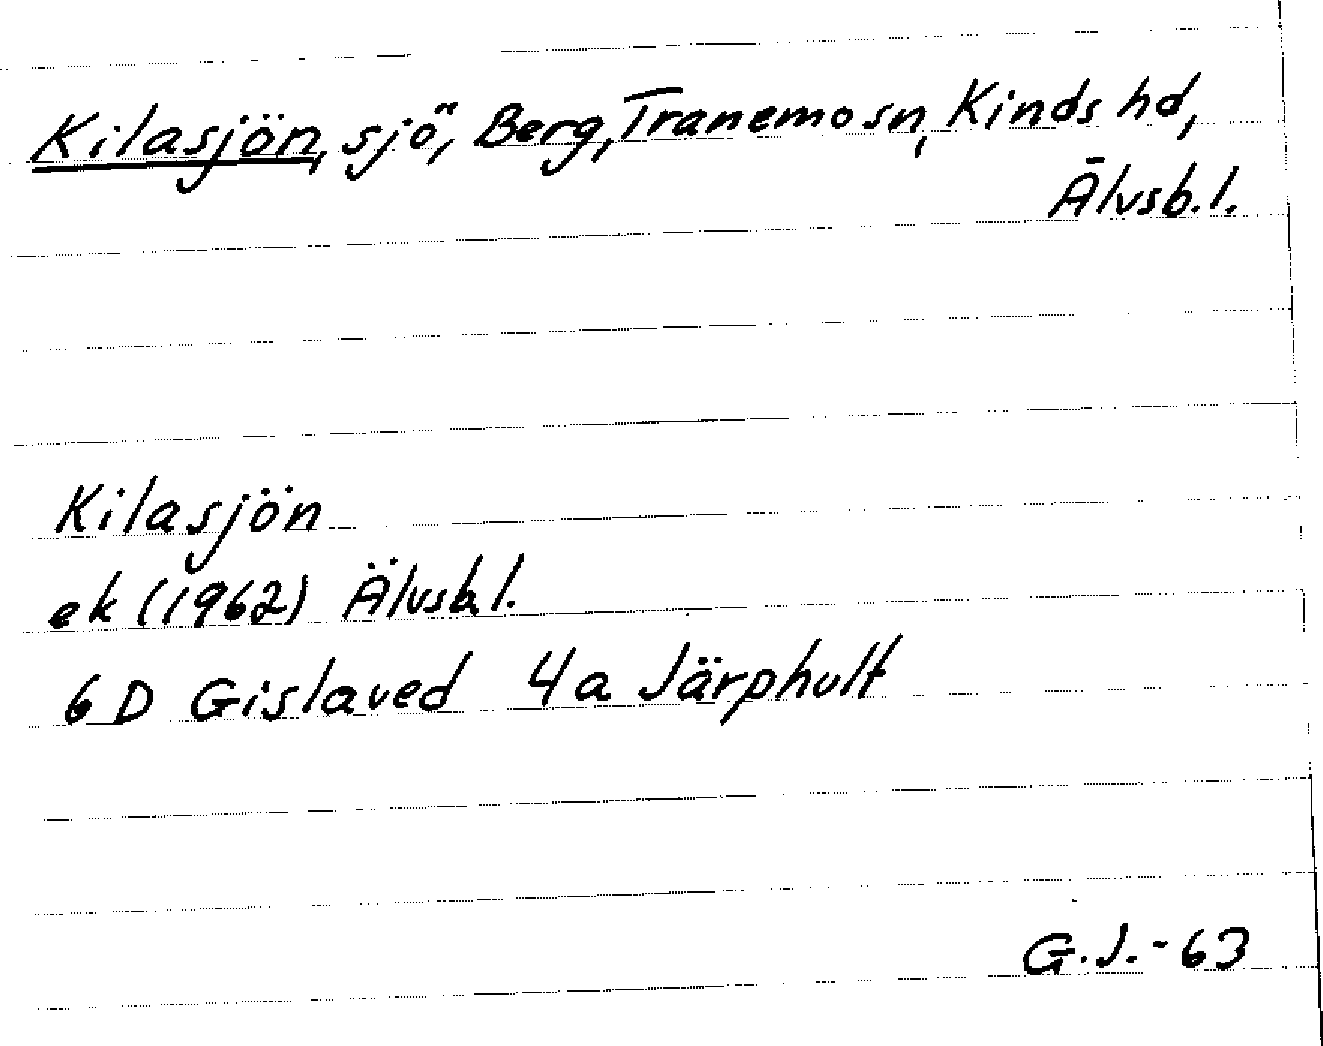 Kilasjön, sjö, Berg, Tranemo sn, Kinds hd,
Älvsb.l.
Kilasjön
ek (1962) Älvsb.l.
6 D Gislaved 4a Järphult
G.J.-63